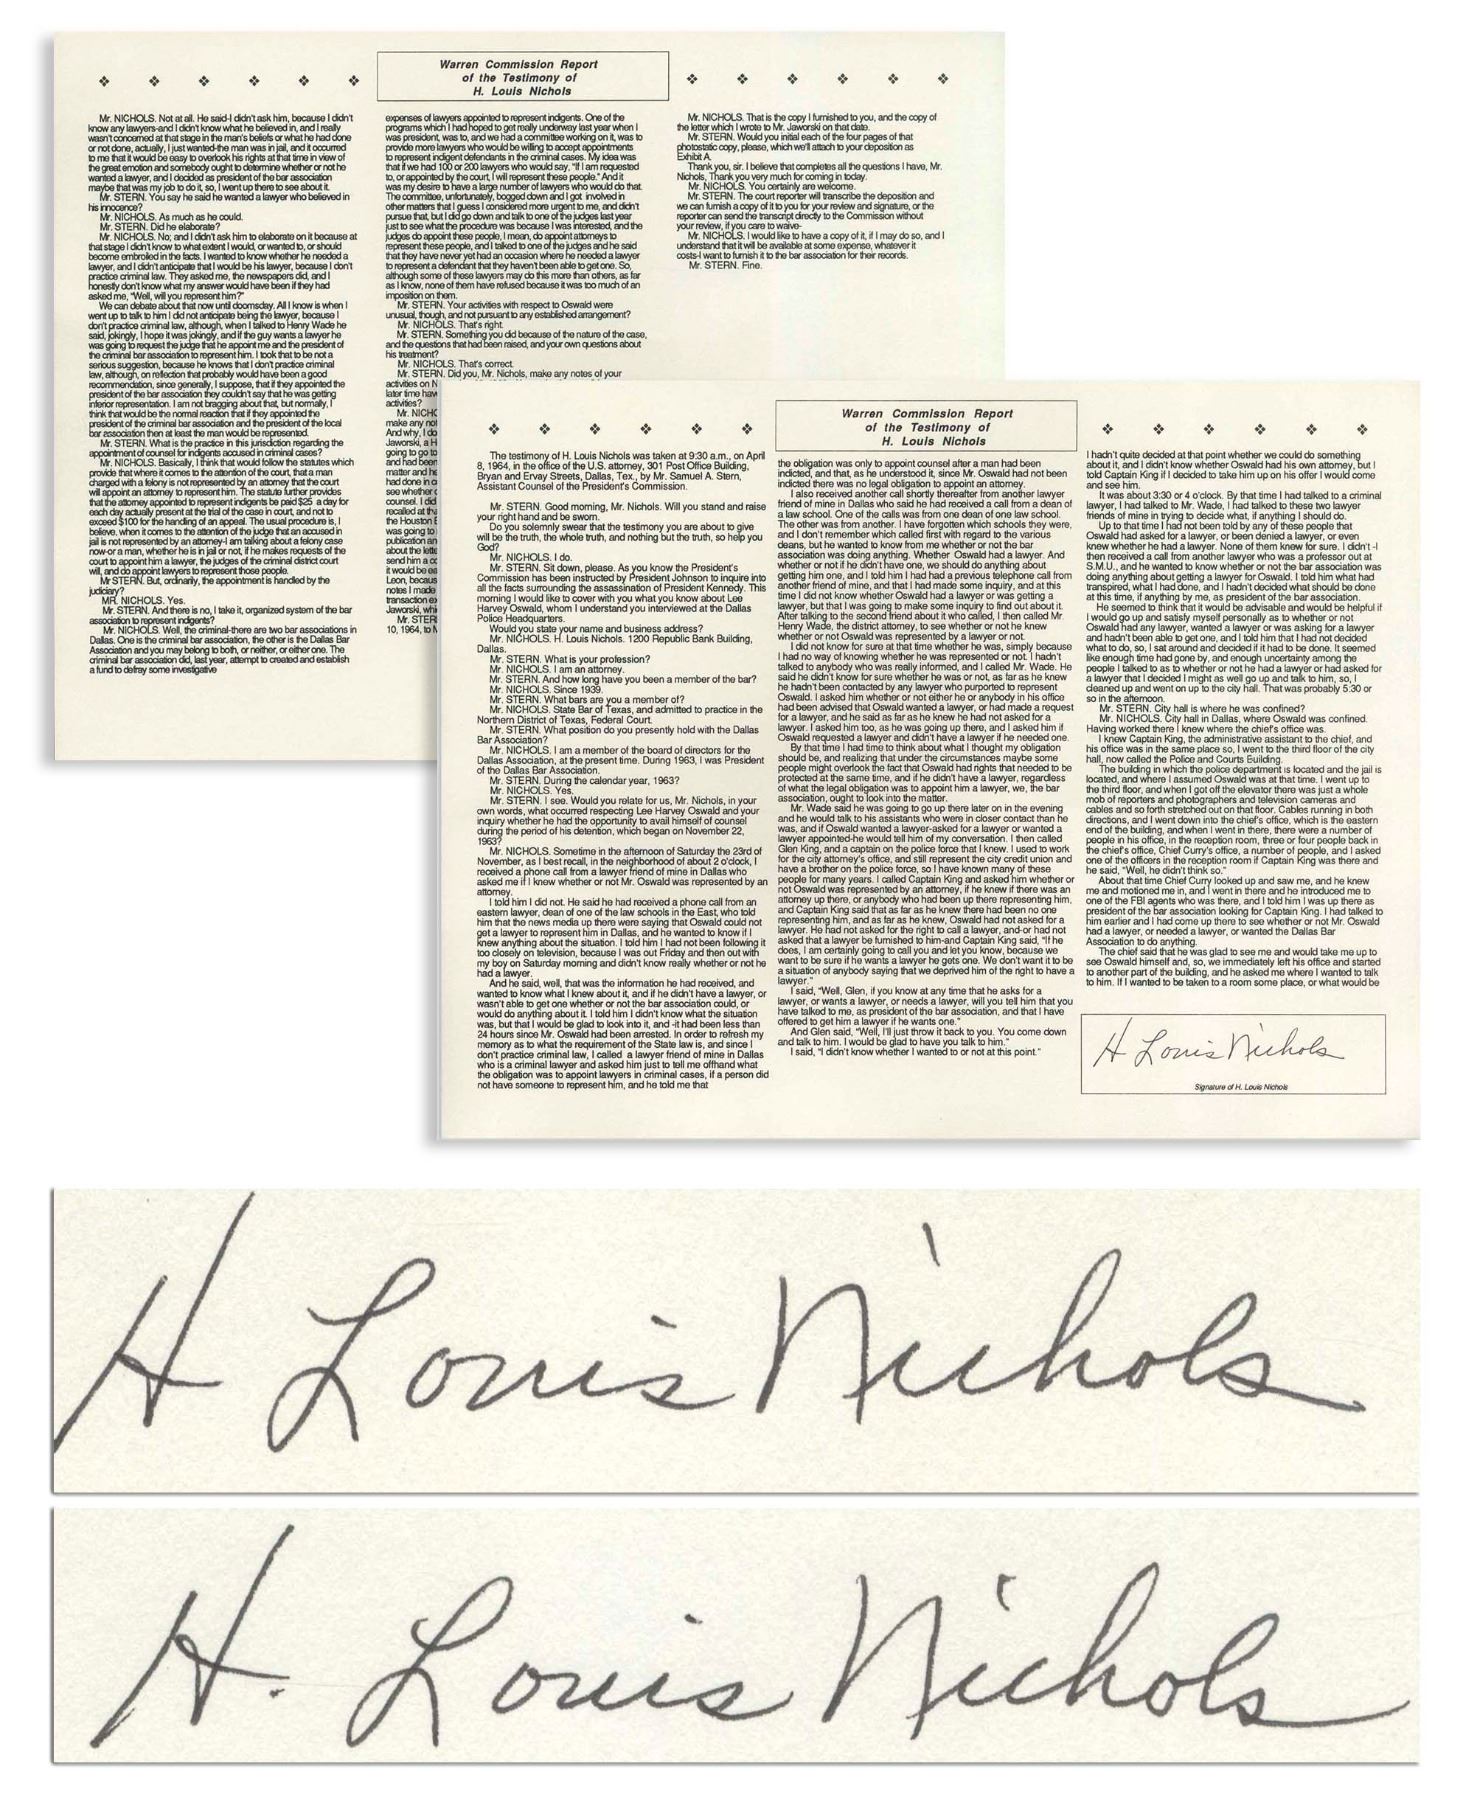 Warren Commission Report
of the Testimony of
H. Louis Nichols
Mr. NICHOLS. Not at all. He said-I didn't ask him, because I didn't
know any lawyers-and I didn't know what he believed in, and I really
wasn't concerned at that stage in the man's beliefs or what he had done
or not done, actually, I just wanted-the man was in jail, and it occurred
to me that it would be easy to overlook his rights at that time in view of
the great emotion and somebody ought to determine whether or not he
wanted a lawyer, and I decided as president of the bar association
maybe that was my job to do it, so, I went up there to see about it.
Mr. STERN. You say he said he wanted a lawyer who believed in
his innocence?
Mr. NICHOLS. As much as he could.
Mr. STERN. Did he elaborate?
Mr. NICHOLS. No; and I didn't ask him to elaborate on it because at
that stage I didn't know to what extent I would, or wanted to, or should
become embroiled in the facts. I wanted to know whether he needed a
lawyer, and I didn't anticipate that I would be his lawyer, because I don't
practice criminal law. They asked me, the newspapers did, and I
honestly don't know what my answer would have been if they had
asked me, "Well, will you represent him?"
We can debate about that now until doomsday. All I know is when I
went up to talk to him I did not anticipate being the lawyer, because I
don't practice criminal law, although, when I talked to Henry Wade he
said, jokingly, I hope it was jokingly, and if the guy wants a lawyer he
was going to request the judge that he appoint me and the president of
the criminal bar association to represent him. I took that to be not a
serious suggestion, because he knows that I don't practice criminal
law, although, on reflection that probably would have been a good
recommendation, since generally, I suppose, that if they appointed the
president of the bar association they couldn't say that he was getting
inferior representation. I am not bragging about that, but normally, I
think that would be the normal reaction that if they appointed the
president of the criminal bar association and the president of the local
bar association then at least the man would be represented.
Mr. STERN. What is the practice in this jurisdiction regarding the
appointment of counsel for indigents accused in criminal cases?
Mr. NICHOLS. Basically, I think that would follow the statutes which
provide that where it comes to the attention of the court, that a man
charged with a felony is not represented by an attorney that the court
will appoint an attorney to represent him. The statute further provides
that the attorney appointed to represent indigents be paid $25 a day for
each day actually present at the trial of the case in court, and not to
exceed $100 for the handling of an appeal. The usual procedure is, I
believe, when it comes to the attention of the judge that an accused in
jail is not represented by an attorney-I am talking about a felony case
now-or a man, whether he is in jail or not, if he makes requests of the
court to appoint him a lawyer, the judges of the criminal district court
will, and do appoint lawyers to represent those people.
Mr STERN. But, ordinarily, the appointment is handled by the
judiciary?
MR. NICHOLS. Yes.
Mr. STERN. And there is no, I take it, organized system of the bar
association to represent indigents?
Mr. NICHOLS. Well, the criminal-there are two bar associations in
Dallas. One is the criminal bar association, the other is the Dallas Bar
Association and you may belong to both, or neither, or either one. The
criminal bar association did, last year, attempt to created and establish
a fund to defray some investigative
expenses of lawyers appointed to represent indigents. One of the
programs which I had hoped to get really underway last year when I
was president, was to, and we had a committee working on it, was to
provide more lawyers who would be willing to accept appointments
to represent indigent defendants in the criminal cases. My idea was
that if we had 100 or 200 lawyers who would say, "If I am requested
to, or appointed by the court, I will represent these people." And it
was my desire to have a large number of lawyers who would do that.
The committee, unfortunately, bogged down and I got involved in
other matters that I guess I considered more urgent to me, and didn't
pursue that, but I did go down and talk to one of the judges last year
just to see what the procedure was because I was interested, and the
judges do appoint these people, I mean, do appoint attorneys to
represent these people, and I talked to one of the judges and he said
that they have never yet had an occasion where he needed a lawyer
to represent a defendant that they haven't been able to get one. So,
although some of these lawyers may do this more than others, as far
as I know, none of them have refused because it was too much of an
imposition on them.
Mr. STERN. Your activities with respect to Oswald were
unusual, though, and not pursuant to any established arrangement?
Mr. NICHOLS. That's right.
Mr. STERN. Something you did because of the nature of the case,
and the questions that had been raised, and your own questions about
his treatment?
Mr. NICHOLS. That's correct.
Mr. STERN. Did you, Mr. Nichols, make any notes of your
activities on N
later time hav
activities?
Mr. NICHO
make any not
And why, I do
Jaworski, a H
going to go to
and had been
matter and he
had done in c
counsel. I did
see whether c
recalled at tha
the Houston B
was going to
publication an
about the lette
send him a co
it would be ea
Leon, becaus
notes I made
transaction ex
Jaworski, whi
Mr. STER
10, 1964, to M
Mr. NICHOLS. That is the copy I furnished to you, and the copy of
the letter which I wrote to Mr. Jaworski on that date.
Mr. STERN. Would you initial each of the four pages of that
photostatic copy, please, which we'll attach to your deposition as
Exhibit A.
Thank you, sir. I believe that completes all the questions I have, Mr.
Nichols, Thank you very much for coming in today.
Mr. NICHOLS. You certainly are welcome.
Mr. STERN. The court reporter will transcribe the deposition and
we can furnish a copy of it to you for your review and signature, or the
reporter can send the transcript directly to the Commission without
your review, if you care to waive-
Mr. NICHOLS. I would like to have a copy of it, if I may do so, and I
understand that it will be available at some expense, whatever it
costs-I want to furnish it to the bar association for their records.
Mr. STERN. Fine.
Warren Commission Report
of the Testimony of
H. Louis Nichols
The testimony of H. Louis Nichols was taken at 9:30 a.m., on April
8, 1964, in the office of the U.S. attorney, 301 Post Office Building,
Bryan and Ervay Streets, Dallas, Tex., by Mr. Samuel A. Stern,
Assistant Counsel of the President's Commission.
Mr. STERN. Good morning, Mr. Nichols. Will you stand and raise
your right hand and be sworn.
Do you solemnly swear that the testimony you are about to give
will be the truth, the whole truth, and nothing but the truth, so help you
God?
Mr. NICHOLS. I do.
Mr. STERN. Sit down, please. As you know the President's
Commission has been instructed by President Johnson to inquire into
all the facts surrounding the assassination of President Kennedy. This
morning I would like to cover with you what you know about Lee
Harvey Oswald, whom I understand you interviewed at the Dallas
Police Headquarters.
Would you state your name and business address?
Mr. NICHOLS. H. Louis Nichols. 1200 Republic Bank Building,
Dallas.
Mr. STERN. What is your profession?
Mr. NICHOLS. I am an attorney.
Mr. STERN. And how long have you been a member of the bar?
Mr. NICHOLS. Since 1939.
Mr. STERN. What bars are you a member of?
Mr. NICHOLS. State Bar of Texas, and admitted to practice in the
Northern District of Texas, Federal Court.
Mr. STERN. What position do you presently hold with the Dallas
Bar Association?
Mr. NICHOLS. I am a member of the board of directors for the
Dallas Association, at the present time. During 1963, I was President
of the Dallas Bar Association.
Mr. STERN. During the calendar year, 1963?
Mr. NICHOLS. Yes.
Mr. STERN. I see. Would you relate for us, Mr. Nichols, in your
own words, what occurred respecting Lee Harvey Oswald and your
inquiry whether he had the opportunity to avail himself of counsel
during the period of his detention, which began on November 22,
1963?
Mr. NICHOLS. Sometime in the afternoon of Saturday the 23rd of
November, as I best recall, in the neighborhood of about 2 o'clock, I
received a phone call from a lawyer friend of mine in Dallas who
asked me if I knew whether or not Mr. Oswald was represented by an
attorney.
I told him I did not. He said he had received a phone call from an
eastern lawyer, dean of one of the law schools in the East, who told
him that the news media up there were saying that Oswald could not
get a lawyer to represent him in Dallas, and he wanted to know if I
knew anything about the situation. I told him I had not been following it
too closely on television, because I was out Friday and then out with
my boy on Saturday morning and didn't know really whether or not he
had a lawyer.
And he said, well, that was the information he had received, and
wanted to know what I knew about it, and if he didn't have a lawyer, or
wasn't able to get one whether or not the bar association could, or
would do anything about it. I told him I didn't know what the situation
was, but that I would be glad to look into it, and -it had been less than
24 hours since Mr. Oswald had been arrested. In order to refresh my
memory as to what the requirement of the State law is, and since I
don't practice criminal law, I called a lawyer friend of mine in Dallas
who is a criminal lawyer and asked him just to tell me offhand what
the obligation was to appoint lawyers in criminal cases, if a person did
not have someone to represent him, and he told me that
the obligation was only to appoint counsel after a man had been
indicted, and that, as he understood it, since Mr. Oswald had not been
indicted there was no legal obligation to appoint an attorney.
I also received another call shortly thereafter from another lawyer
friend of mine in Dallas who said he had received a call from a dean of
a law school. One of the calls was from one dean of one law school.
The other was from another. I have forgotten which schools they were,
and I don't remember which called first with regard to the various
deans, but he wanted to know from me whether or not the bar
association was doing anything. Whether Oswald had a lawyer. And
whether or not if he didn't have one, we should do anything about
getting him one, and I told him I had had a previous telephone call from
another friend of mine, and that I had made some inquiry, and at this
time I did not know whether Oswald had a lawyer or was getting a
lawyer, but that I was going to make some inquiry to find out about it.
After talking to the second friend about it who called, I then called Mr.
Henry Wade, the district attorney, to see whether or not he knew
whether or not Oswald was represented by a lawyer or not.
I did not know for sure at that time whether he was, simply because
I had no way of knowing whether he was represented or not. I hadn't
talked to anybody who was really informed, and I called Mr. Wade. He
said he didn't know for sure whether he was or not, as far as he knew
he hadn't been contacted by any lawyer who purported to represent
Oswald. I asked him whether or not either he or anybody in his office
had been advised that Oswald wanted a lawyer, or had made a request
for a lawyer, and he said as far as he knew he had not asked for a
lawyer. I asked him too, as he was going up there, and I asked him if
Oswald requested a lawyer and didn't have a lawyer if he needed one.
By that time I had time to think about what I thought my obligation
should be, and realizing that under the circumstances maybe some
people might overlook the fact that Oswald had rights that needed to be
protected at the same time, and if he didn't have a lawyer, regardless
of what the legal obligation was to appoint him a lawyer, we, the bar
association, ought to look into the matter.
Mr. Wade said he was going to go up there later on in the evening
and he would talk to his assistants who were in closer contact than he
was, and if Oswald wanted a lawyer-asked for a lawyer or wanted a
lawyer appointed-he would tell him of my conversation. I then called
Glen King, and a captain on the police force that I knew. I used to work
for the city attorney's office, and still represent the city credit union and
have a brother on the police force, so I have known many of these
people for many years. I called Captain King and asked him whether or
not Oswald was represented by an attorney, if he knew if there was an
attorney up there, or anybody who had been up there representing him,
and Captain King said that as far as he knew there had been no one
representing him, and as far as he knew, Oswald had not asked for a
lawyer. He had not asked for the right to call a lawyer, and-or had not
asked that a lawyer be furnished to him-and Captain King said, "If he
does, I am certainly going to call you and let you know, because we
want to be sure if he wants a lawyer he gets one. We don't want it to be
a situation of anybody saying that we deprived him of the right to have a
lawyer."
I said, "Well, Glen, if you know at any time that he asks for a
lawyer, or wants a lawyer, or needs a lawyer, will you tell him that you
have talked to me, as president of the bar association, and that I have
offered to get him a lawyer if he wants one."
And Glen said, "Well, I'll just throw it back to you. You come down
and talk to him. I would be glad to have you talk to him."
I said, "I didn't know whether I wanted to or not at this point."
I hadn't quite decided at that point whether we could do something
about it, and I didn't know whether Oswald had his own attorney, but I
told Captain King if I decided to take him up on his offer I would come
and see him.
It was about 3:30 or 4 o'clock. By that time I had talked to a criminal
lawyer, I had talked to Mr. Wade, I had talked to these two lawyer
friends of mine in trying to decide what, if anything I should do.
Up to that time I had not been told by any of these people that
Oswald had asked for a lawyer, or been denied a lawyer, or even
knew whether he had a lawyer. None of them knew for sure. I didn't -I
then received a call from another lawyer who was a professor out at
S.M.U., and he wanted to know whether or not the bar association was
doing anything about getting a lawyer for Oswald. I told him what had
transpired, what I had done, and I hadn't decided what should be done
at this time, if anything by me, as president of the bar association.
He seemed to think that it would be advisable and would be helpful if
I would go up and satisfy myself personally as to whether or not
Oswald had any lawyer, wanted a lawyer or was asking for a lawyer
and hadn't been able to get one, and I told him that I had not decided
what to do, so, I sat around and decided if it had to be done. It seemed
like enough time had gone by, and enough uncertainty among the
people I talked to as to whether or not he had a lawyer or had asked for
a lawyer that I decided I might as well go up and talk to him, so, I
cleaned up and went on up to the city hall. That was probably 5:30 or
so in the afternoon.
Mr. STERN. City hall is where he was confined?
Mr. NICHOLS. City hall in Dallas, where Oswald was confined.
Having worked there I knew where the chief's office was.
I knew Captain King, the administrative assistant to the chief, and
his office was in the same place so, I went to the third floor of the city
hall, now called the Police and Courts Euilding.
The building in which the police department is located and the jail is
located, and where I assumed Oswald was at that time. I went up to
the third floor, and when I got off the elevator there was just a whole
mob of reporters and photographers and television cameras and
cables and so forth stretched out on that floor. Cables running in both
directions, and I went down into the chief's office, which is the eastern
end of the building, and when I went in there, there were a number of
people in his office, in the reception room, three or four people back in
the chief's office, Chief Curry's office, a number of people, and I asked
one of the officers in the reception room if Captain King was there and
he said, "Well, he didn't think so."
About that time Chief Curry looked up and saw me, and he knew
me and motioned me in, and I went in there and he introduced me to
one of the FBI agents who was there, and I told him I was up there as
president of the bar association looking for Captain King. I had talked to
him earlier and I had come up there to see whether or not Mr. Oswald
had a lawyer, or needed a lawyer, or wanted the Dallas Bar
Association to do anything.
The chief said that he was glad to see me and would take me up to
see Oswald himself and, so, we immediately left his office and started
to another part of the building, and he asked me where I wanted to talk
to him. If I wanted to be taken to a room some place, or what would be
H Louis Nichols
Signature of H. Louis Nichols
H Louis Nichols
H. Louis Nichols